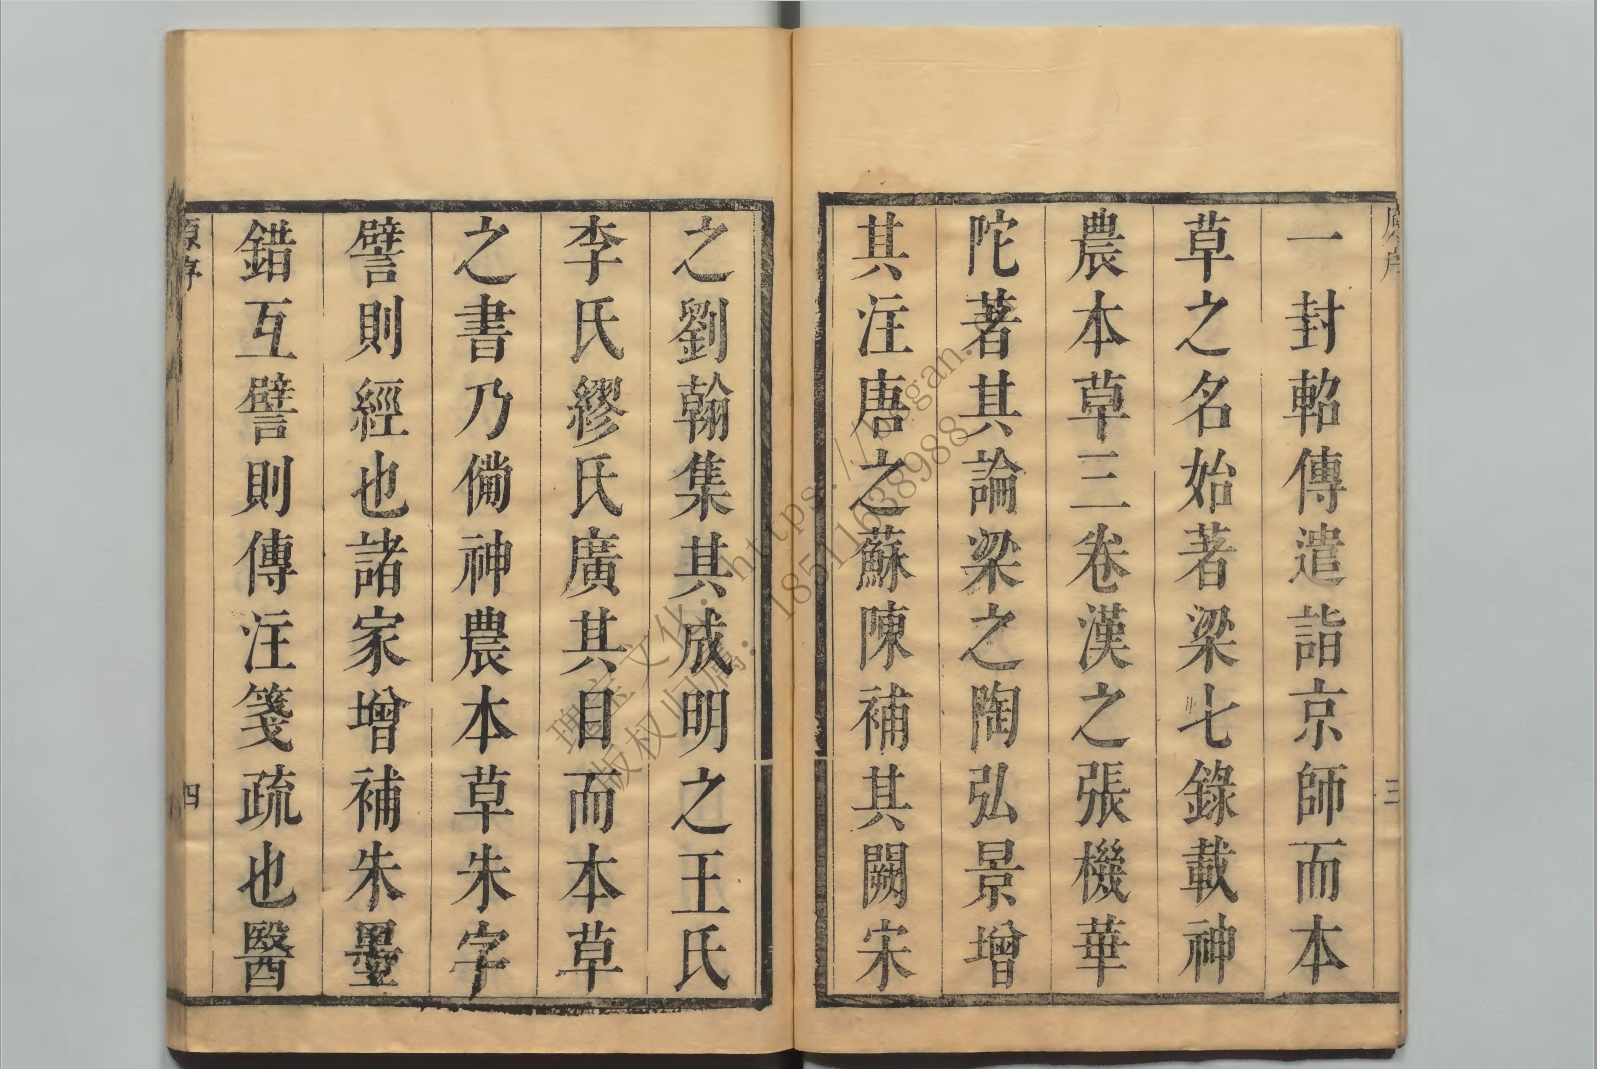 原序 三
一封軺傳遣詣京師而本
草之名始著梁七錄載神
農本草三卷漢之張機華
陀著其論梁之陶弘景增
其注唐之蘇陳補其闕宋
之劉翰集其成明之王氏
李氏繆氏廣其目而本草
之書乃備神農本草朱字
譬則經也諸家增補朱墨
錯互譬則傳注箋疏也醫
原序 四
瑰宝文化: https://
版权归属: 18511638988